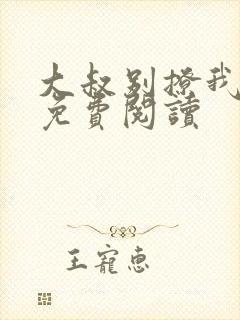 大叔别撩我
免費閱讀
王寵惠